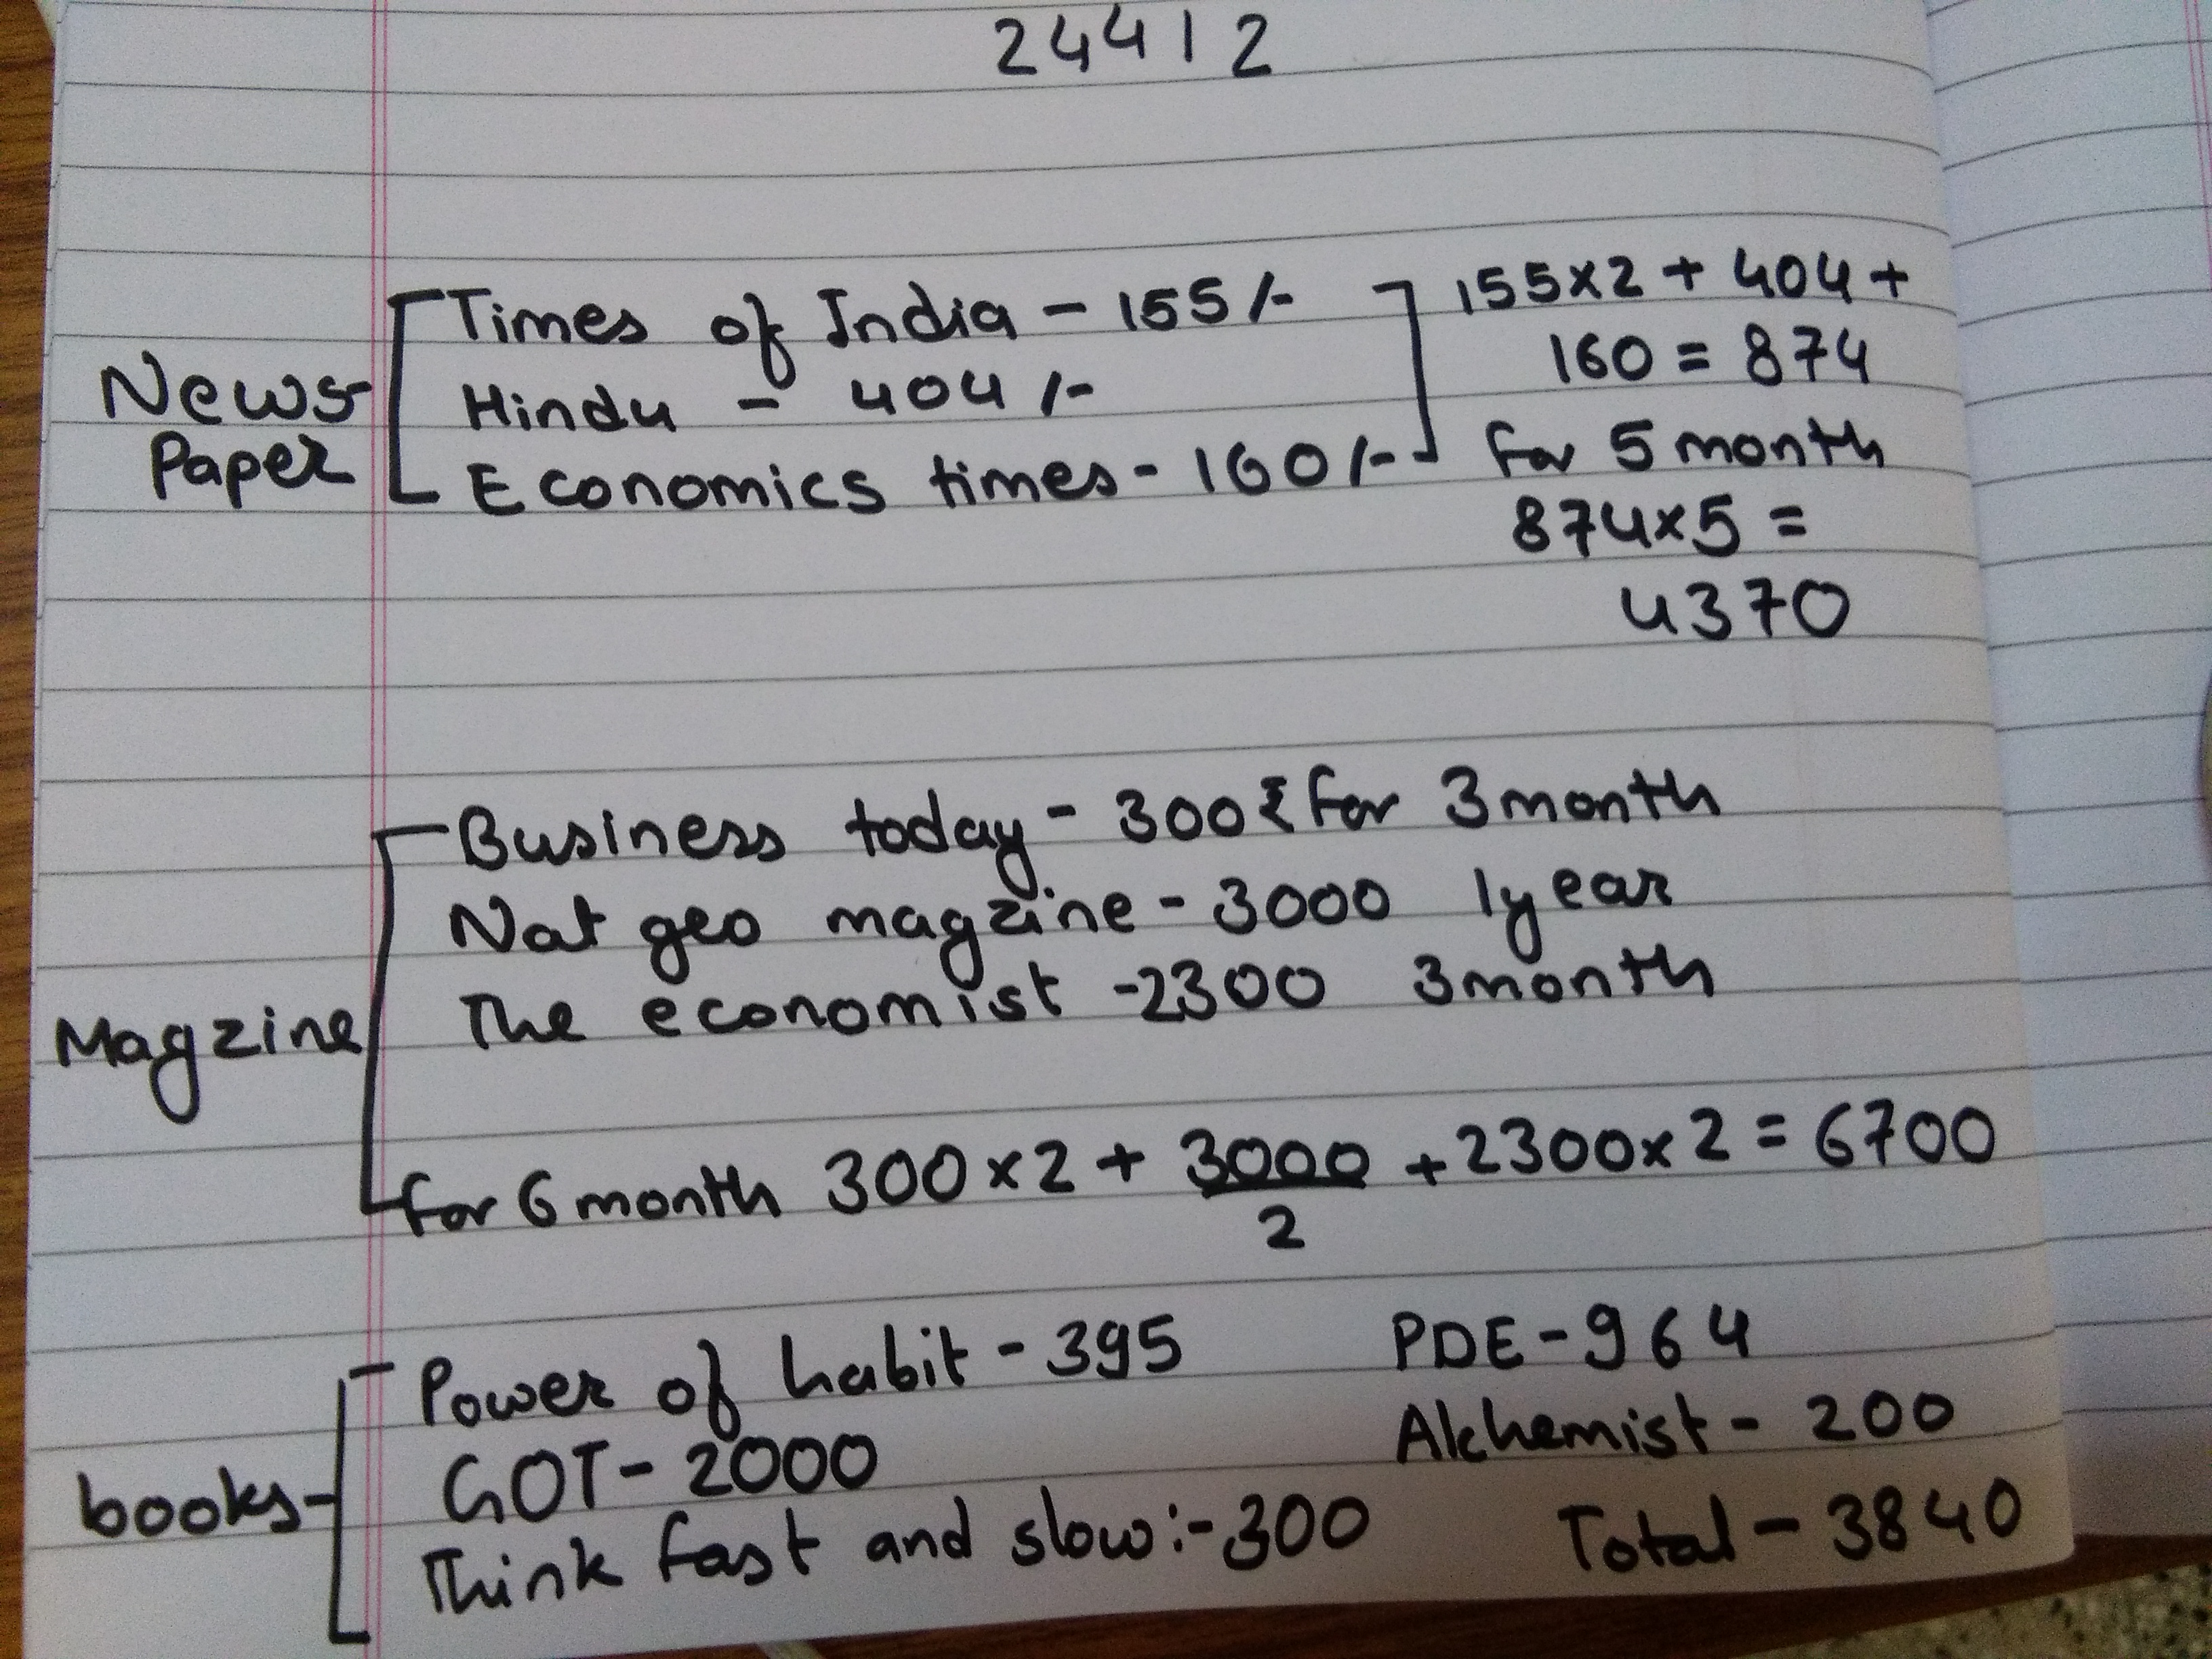 24412
Times of India - 155/-
Hindu - 404/-
Economics times - 160/-
News-
Paper
155x2 + 404 +
160 = 874
for 5 month
874x5 =
4370
Business today - 300₹ for 3 month
Nat geo magzine - 3000 1year
The economist -2300 3month
Magzine
for 6 month 300 x 2 + 3000/2 + 2300x2 = 6700
Power of habit - 395
GOT - 2000
Think fast and slow:- 300
books-
PDE - 964
Alchemist - 200
Total - 3840